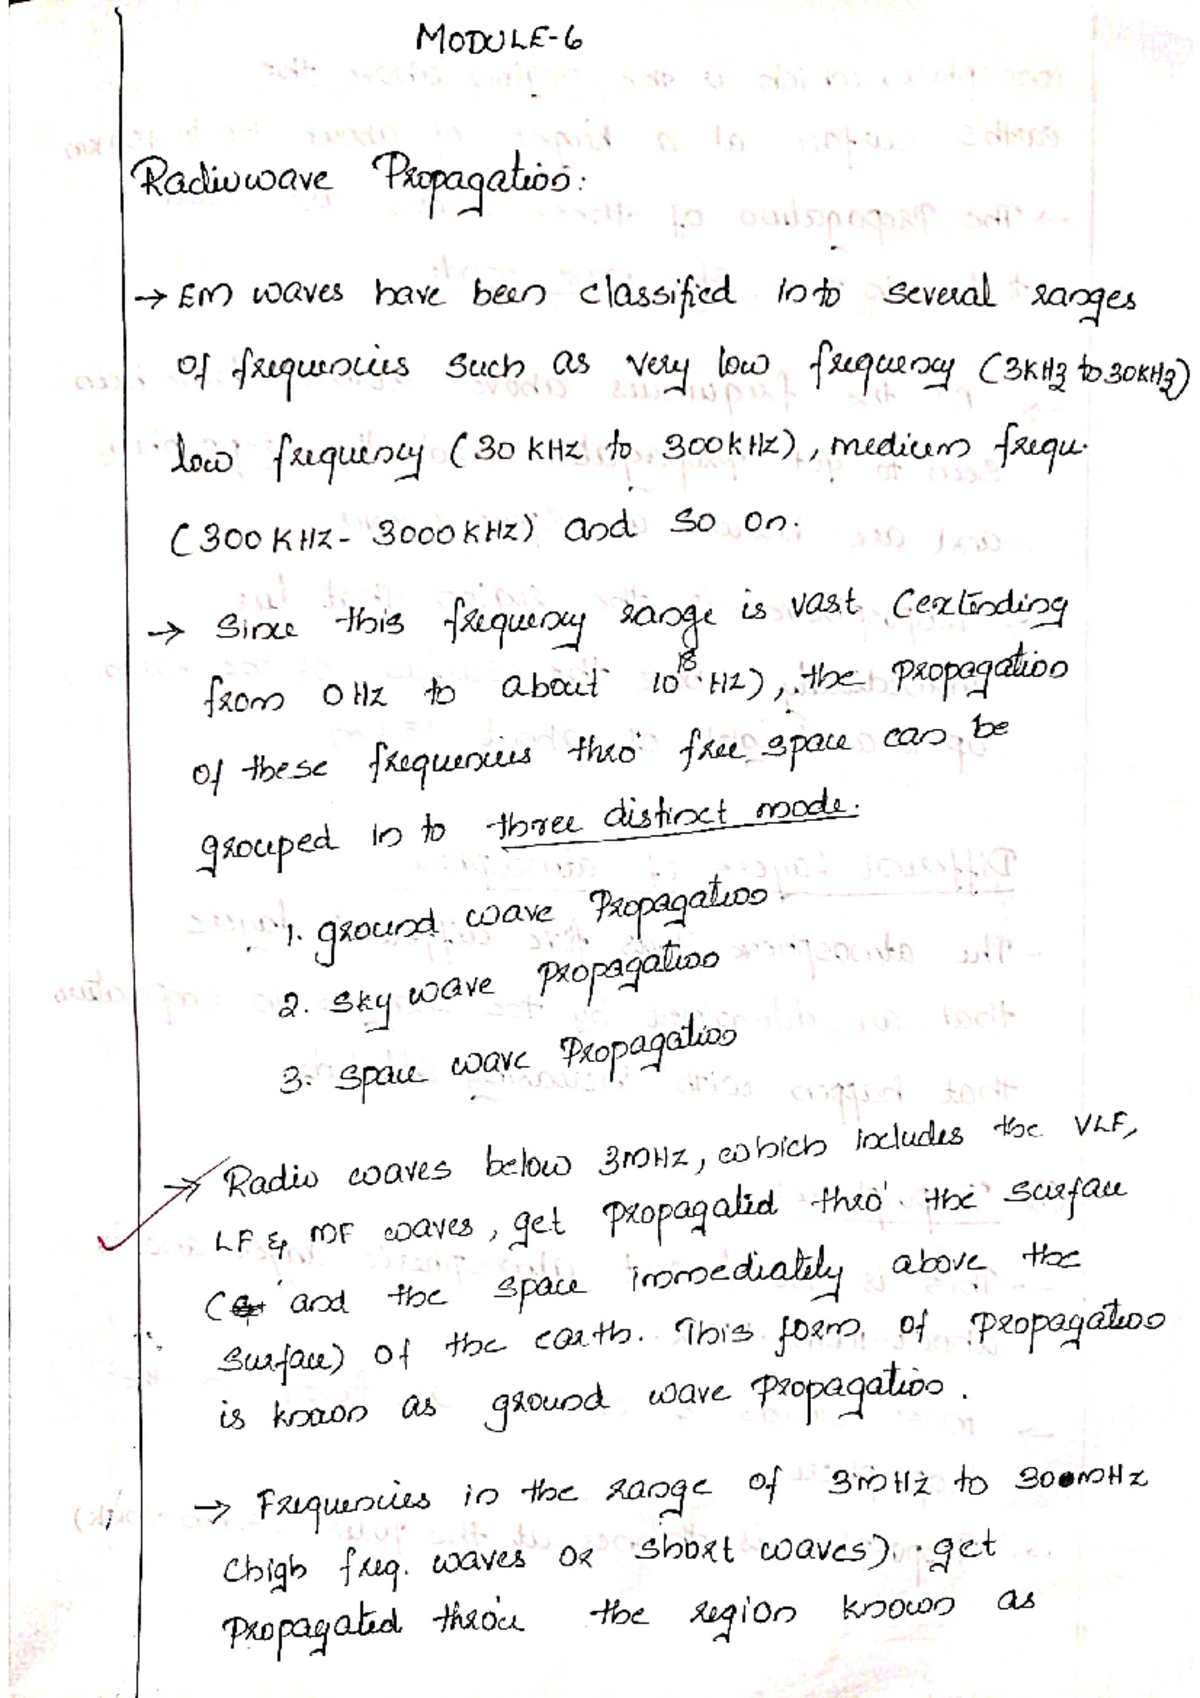 MODULE-6
Radiowave Propagation:
→ EM waves have been classified into several ranges
of frequencies such as very low frequency (3KHz to 30KHz)
low frequency (30 KHz to 300KHz), medium frequ.
(300 KHz - 3000KHz) and so on.
→ Since this frequency range is vast (extending
from 0 Hz to about 10^18 Hz), the propagation
of these frequencies thro' free space can be
grouped in to three distinct mode.
1. ground wave Propagation
2. Sky wave Propagation
3. Space wave Propagation
→ Radio waves below 3MHz, which includes the VLF,
LF & MF waves, get propagated thro' the surface
( and the space immediately above the
surface) of the earth. This form of propagation
is known as ground wave propagation.
→ Frequencies in the range of 3MHz to 30MHz
(high freq. waves or short waves) get
propagated the region known as